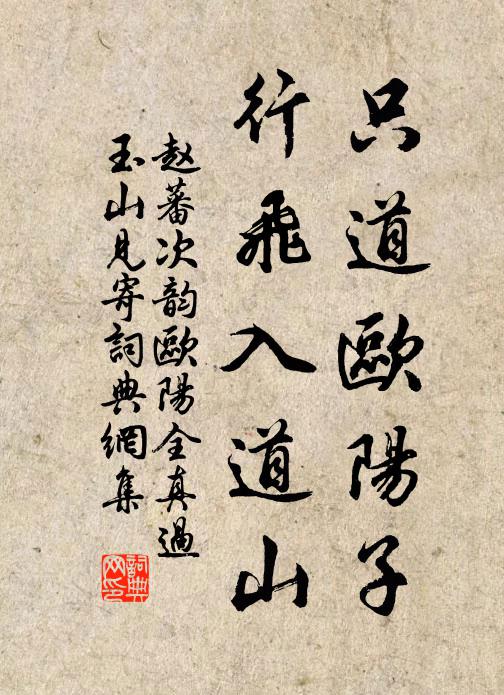 只道歐陽子
行飛入道山
赵蕃次韵歐陽全真過
玉山見寄詞典網集
詞典网印